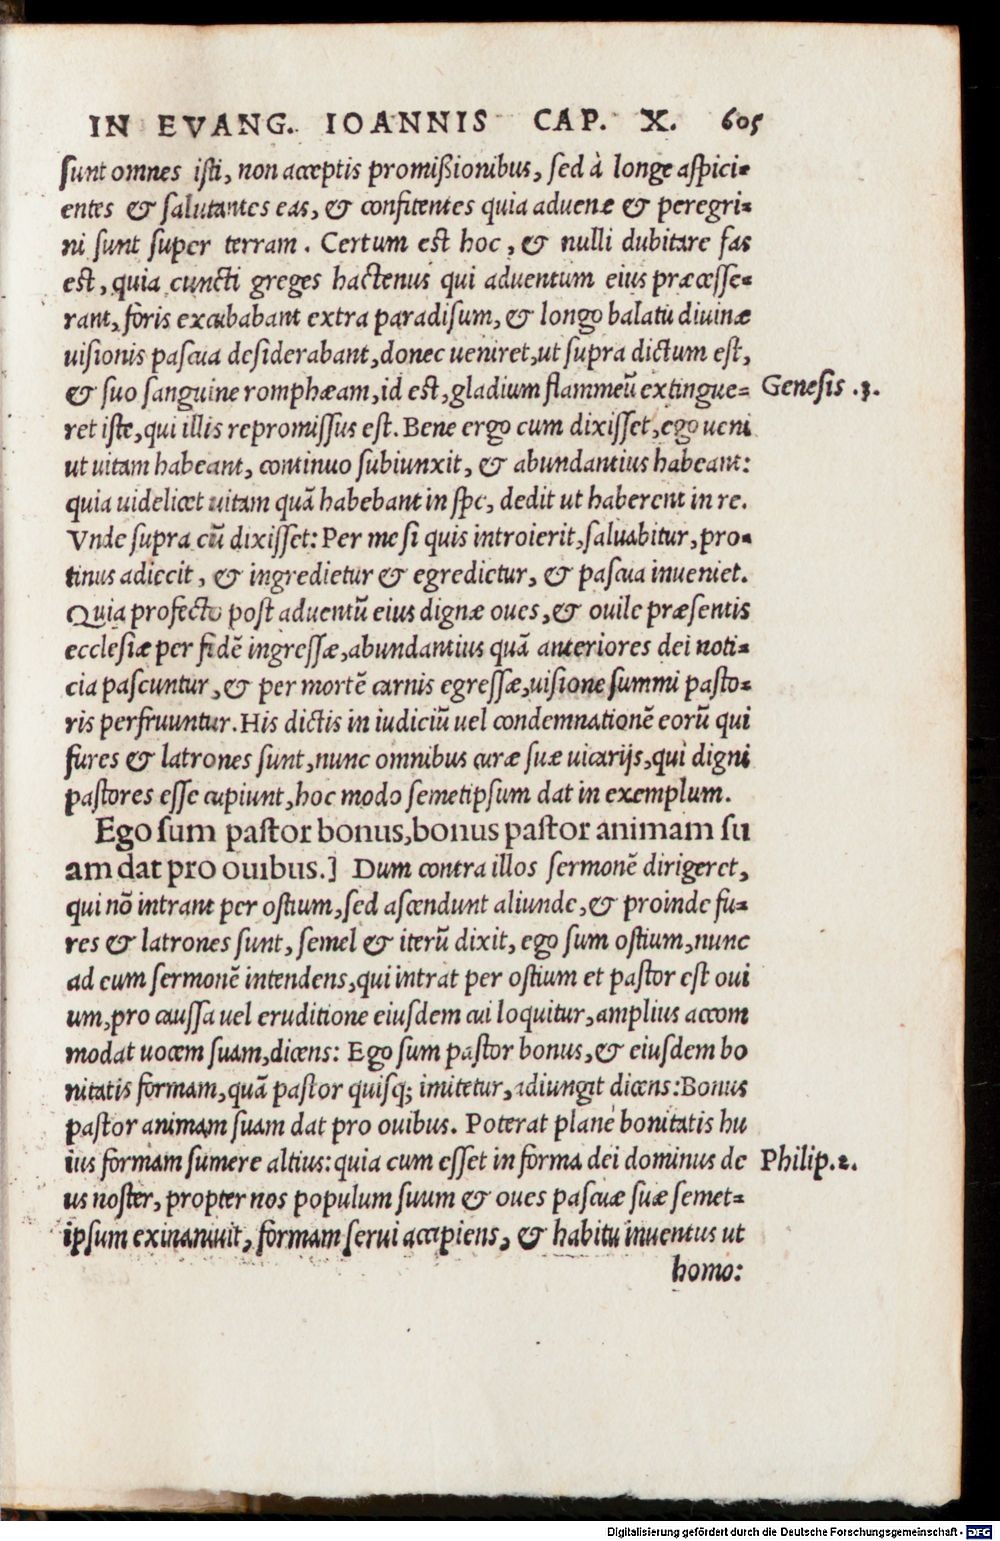 IN EVANG. IOANNIS CAP. X. 605
sunt omnes isti, non acceptis promißionibus, sed à longe aspici-
entes & salutantes eas, & confitentes quia aduenæ & peregri-
ni sunt super terram. Certum est hoc, & nulli dubitare fas
est, quia cuncti greges hactenus qui aduentum eius præcesse-
rant, foris excubabant extra paradisum, & longo balatu diuinæ
uisionis pascua desiderabant, donec ueniret, ut supra dictum est,
& suo sanguine romphæam, id est, gladium flammeũ extingue-
Genesis .3.
ret iste, qui illis repromissus est. Bene ergo cum dixisset, ego ueni
ut uitam habeant, continuo subiunxit, & abundantius habeant:
quia uidelicet uitam quã habebant in spe, dedit ut haberent in re.
Vnde supra cũ dixisset: Per me si quis introierit, saluabitur, pro-
tinus adiecit, & ingredietur & egredietur, & pascua inueniet.
Quia profecto post aduentũ eius dignæ oues, & ouile præsentis
ecclesiæ per fidẽ ingressæ, abundantius quã anteriores dei noti-
cia pascuntur, & per mortẽ carnis egressæ, uisione summi pasto-
ris perfruuntur. His dictis in iudiciũ uel condemnationẽ eorũ qui
fures & latrones sunt, nunc omnibus curæ suæ uicarijs, qui digni
pastores esse cupiunt, hoc modo semetipsum dat in exemplum.
Ego sum pastor bonus, bonus pastor animam su
am dat pro ouibus.] Dum contra illos sermonẽ dirigeret,
qui nõ intrant per ostium, sed ascendunt aliunde, & proinde fu-
res & latrones sunt, semel & iterũ dixit, ego sum ostium, nunc
ad eum sermonẽ intendens, qui intrat per ostium et pastor est oui
um, pro caussa uel eruditione eiusdem cui loquitur, amplius accom
modat uocem suam, dicens: Ego sum pastor bonus, & eiusdem bo
nitatis formam, quã pastor quisq; imitetur, adiungit dicens: Bonus
pastor animam suam dat pro ouibus. Poterat planè bonitatis hu
ius formam sumere altius: quia cum esset in forma dei dominus de
Philip. 2.
us noster, propter nos populum suum & oues pascuæ suæ semet-
ipsum exinaniuit, formam serui accipiens, & habitu inuentus ut
homo:
Digitalisierung gefördert durch die Deutsche Forschungsgemeinschaft - DFG